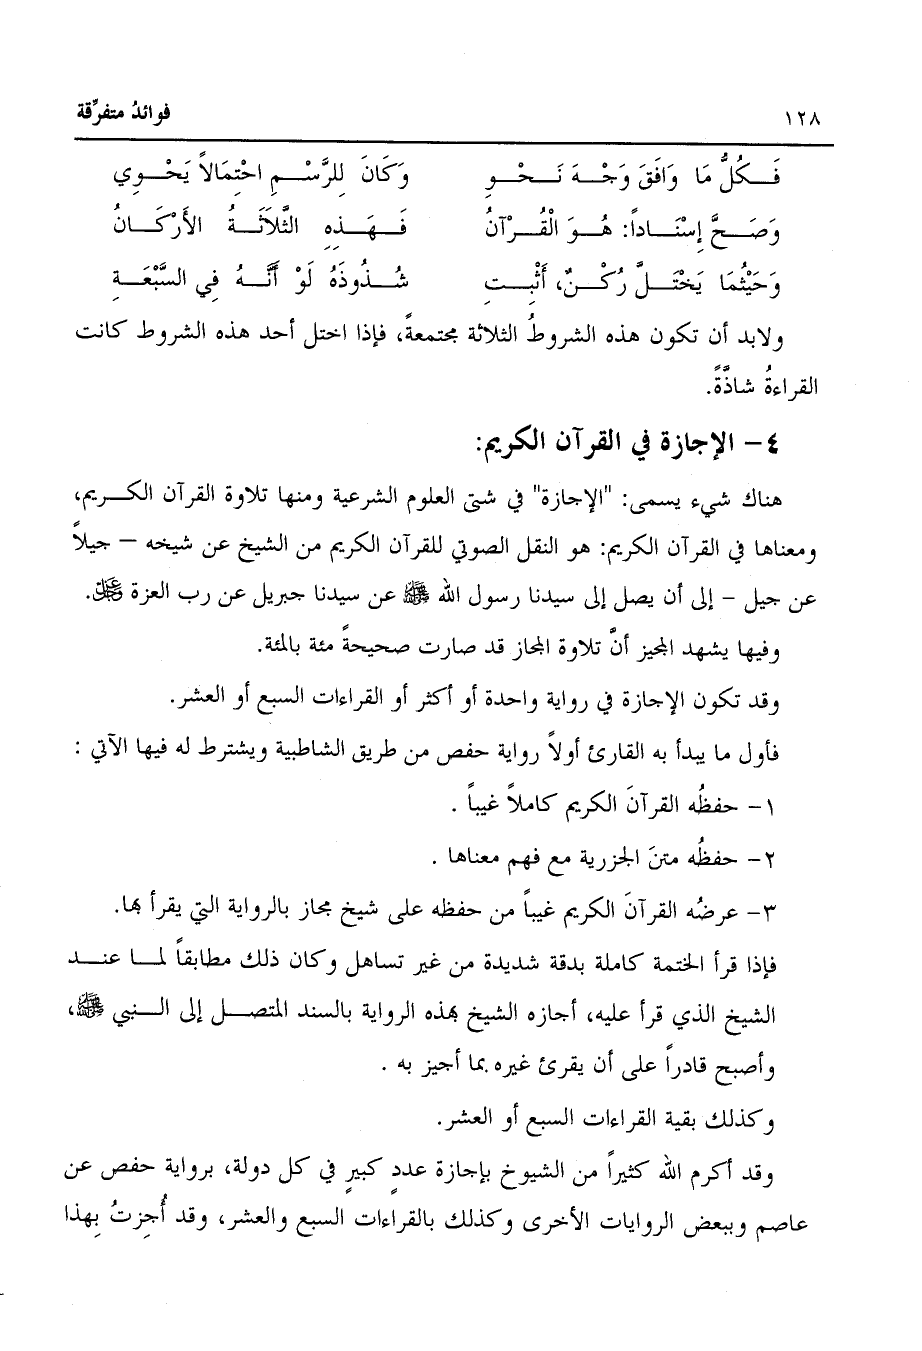 ١٢٨ فوائدُ متفرِّقة
فَـكُلُّ مَا وَافَقَ وَجْـهَ نَـحْـوِ وَكَانَ لِلرَّسْـمِ احْتِمَالاً يَحْـوِي
وَصَـحَّ إِسْنَـاداً: هُـوَ الْقُـرْآنُ فَـهَـذِهِ الثَّلَاثَـةُ الأَرْكَـانُ
وَحَيْثُمَا يَخْتَـلَّ رُكْـنٌ، أَثْبِـتِ شُـذُوذَهُ لَوْ أَنَّـهُ فِي السَّبْعَـةِ
ولابد أن تكون هذه الشروطُ الثلاثة مجتمعةً، فإذا اختل أحد هذه الشروط كانت
القراءةُ شاذَّةً.
٤- الإجازة في القرآن الكريم:
هناك شيء يسمى: "الإجازة" في شتى العلوم الشرعية ومنها تلاوة القرآن الكـريم،
ومعناها في القرآن الكريم: هو النقل الصوتي للقرآن الكريم من الشيخ عن شيخه – جيلاً
عن جيل – إلى أن يصل إلى سيدنا رسول الله ﷺ عن سيدنا جبريل عن رب العزة عجلّ.
وفيها يشهد المجيز أنَّ تلاوة المجاز قد صارت صحيحةً مئة بالمئة.
وقد تكون الإجازة في رواية واحدة أو أكثر أو القراءات السبع أو العشر.
فأول ما يبدأ به القارئ أولاً رواية حفص من طريق الشاطبية ويشترط له فيها الآتي :
١- حفظُه القرآنَ الكريم كاملاً غيباً .
٢- حفظُه متنَ الجزرية مع فهم معناها .
٣- عرضُه القرآنَ الكريم غيباً من حفظه على شيخ مجاز بالرواية التي يقرأ بها.
فإذا قرأ الختمة كاملة بدقة شديدة من غير تساهل وكان ذلك مطابقاً لمـا عنـد
الشيخ الذي قرأ عليه، أجازه الشيخ بهذه الرواية بالسند المتصـل إلى الـنبي ﷺ،
وأصبح قادراً على أن يقرئ غيره بما أجيز به .
وكذلك بقية القراءات السبع أو العشر.
وقد أكرم الله كثيراً من الشيوخ بإجازة عددٍ كبيرٍ في كل دولة، برواية حفص عن
عاصم وببعض الروايات الأخرى وكذلك بالقراءات السبع والعشر، وقد أُجِزتُ بِهذا